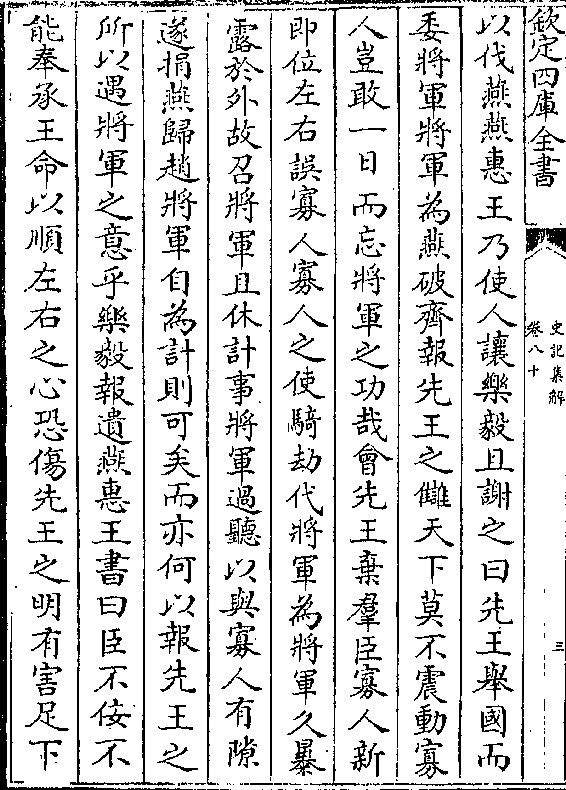 欽定四庫全書
史記集解
卷八十
三
以伐燕燕惠王乃使人讓樂毅且謝之曰先王舉國而
委將軍將軍為燕破齊報先王之讎天下莫不震動寡
人豈敢一日而忘將軍之功哉會先王棄羣臣寡人新
即位左右誤寡人寡人之使騎劫代將軍為將軍久暴
露於外故召將軍且休計事將軍過聽以與寡人有隙
遂捐燕歸趙將軍自為計則可矣而亦何以報先王之
所以遇將軍之意乎樂毅報遺燕惠王書曰臣不佞不
能奉承王命以順左右之心恐傷先王之明有害足下